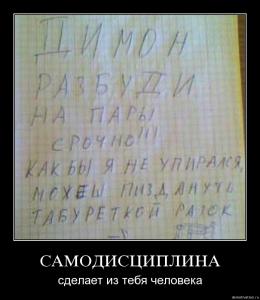 ДИМОН
РАЗБУДИ
НА ПАРЫ
СРОЧНО!!!
КАК БЫ Я НЕ УПИРАЛСЯ,
МОЖЕШ ПИЗДАНУТЬ
ТАБУРЕТКОЙ РАЗОК
САМОДИСЦИПЛИНА
сделает из тебя человека